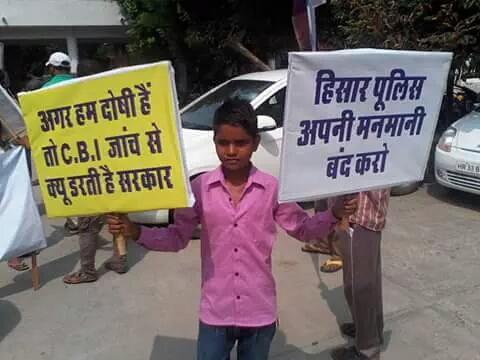 अगर हम दोषी हैं
तो C.B.I जांच से
क्यू डरती है सरकार
हिसार पूलिस
अपनी मनमानी
बंद करो